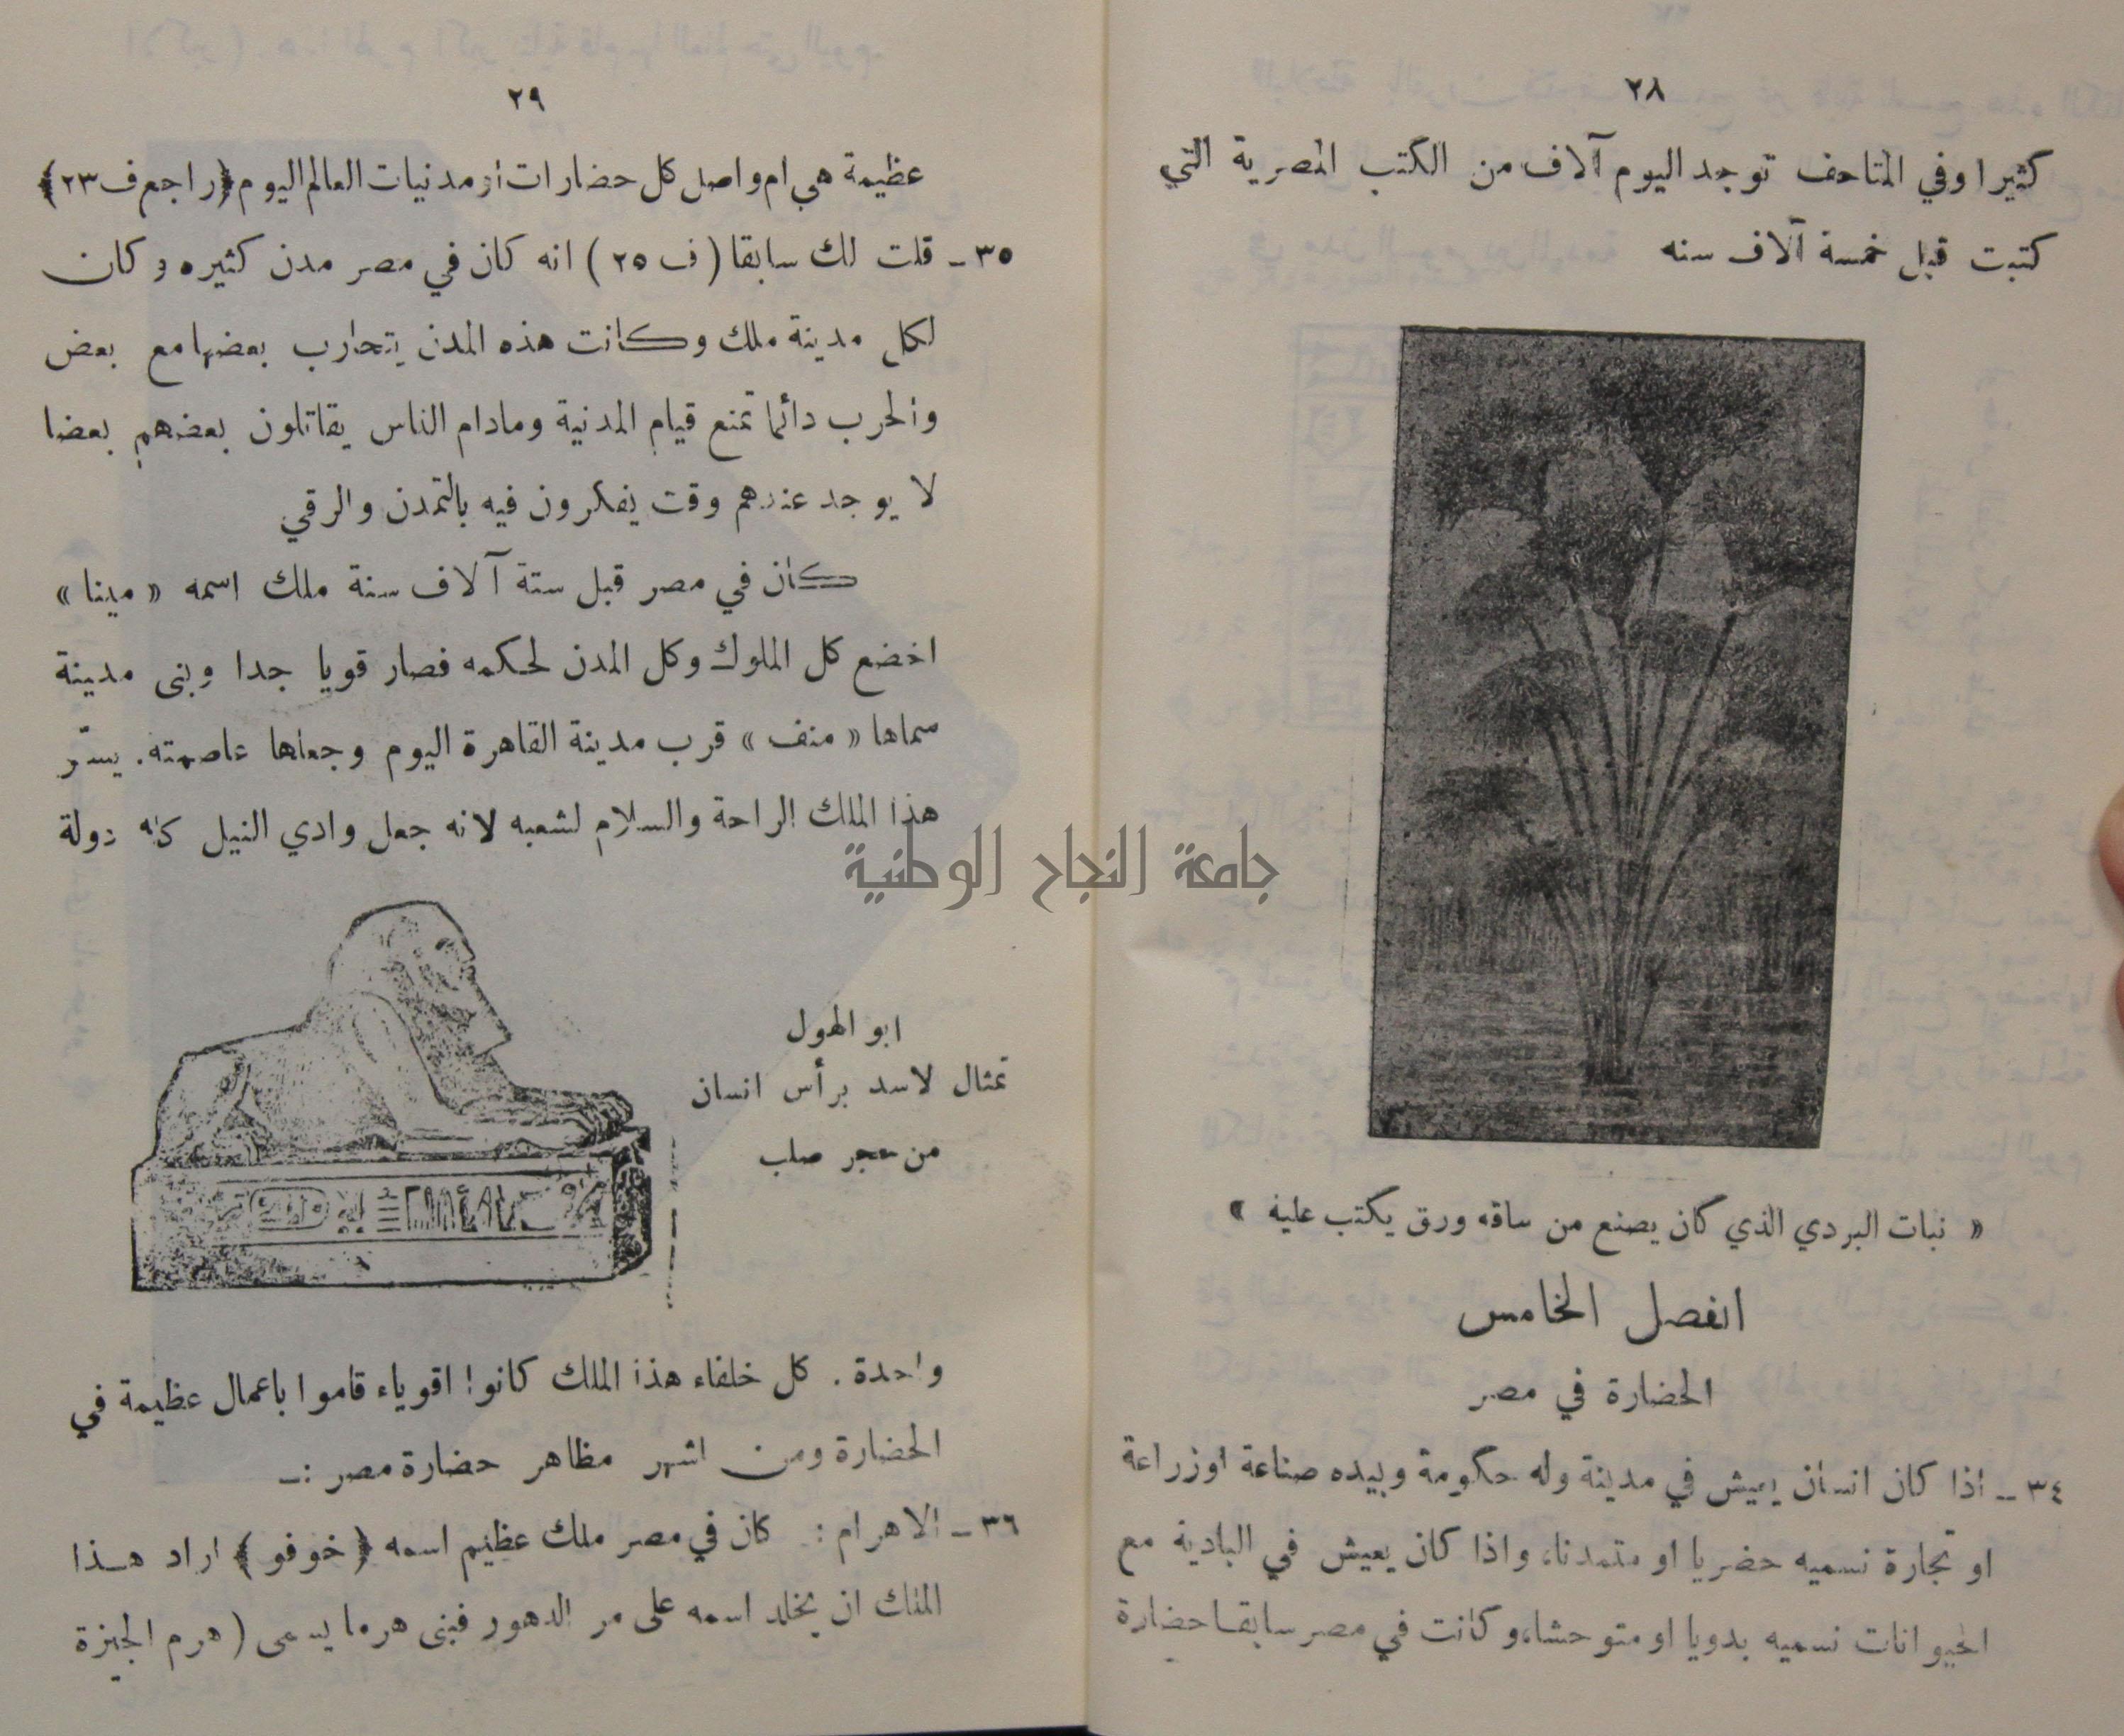 ٢٨
كثيرا وفي المتاحف توجد اليوم آلاف من الكتب المصرية التي
كتبت قبل خمسة آلاف سنه
« نبات البردي الذي كان يصنع من ساقه ورق يكتب عليه »
الفصل الخامس
الحضارة في مصر
٣٤ ــ اذا كان انسان يعيش في مدينة وله حكومة وبيده صناعة او زراعة
او تجارة نسميه حضريا او متمدنا، واذا كان يعيش في البادية مع
الحيوانات نسميه بدويا او متوحشا، وكانت في مصر سابقا حضارة
٢٩
عظيمة هي ام واصل كل حضارات او مدنيات العالم اليوم ﴿راجع ف ٢٣﴾
٣٥ ــ قلت لك سابقا ( ف ٢٥ ) انه كان في مصر مدن كثيره وكان
لكل مدينة ملك وكانت هذه المدن يتحارب بعضها مع بعض
والحرب دائما تمنع قيام المدنية ومادام الناس يقاتلون بعضهم بعضا
لا يوجد عندهم وقت يفكرون فيه بالتمدن والرقي
كان في مصر قبل ستة آلاف سنة ملك اسمه « مينا »
اخضع كل الملوك وكل المدن لحكمه فصار قويا جدا وبنى مدينة
سماها « منف » قرب مدينة القاهرة اليوم وجعلها عاصمته. يسّر
هذا الملك الراحة والسلام لشعبه لانه جعل وادي النيل كله دولة
ابو الهول
تمثال لاسد برأس انسان
من حجر صلب
واحدة . كل خلفاء هذا الملك كانوا اقوياء قاموا باعمال عظيمة في
الحضارة ومن اشهر مظاهر حضارة مصر :ــ
٣٦ ــ الاهرام : كان في مصر ملك عظيم اسمه ﴿ خوفو ﴾ اراد هذا
الملك ان يخلد اسمه على مر الدهور فبنى هرما يسمى ( هرم الجيزة
جامعة النجاح الوطنية